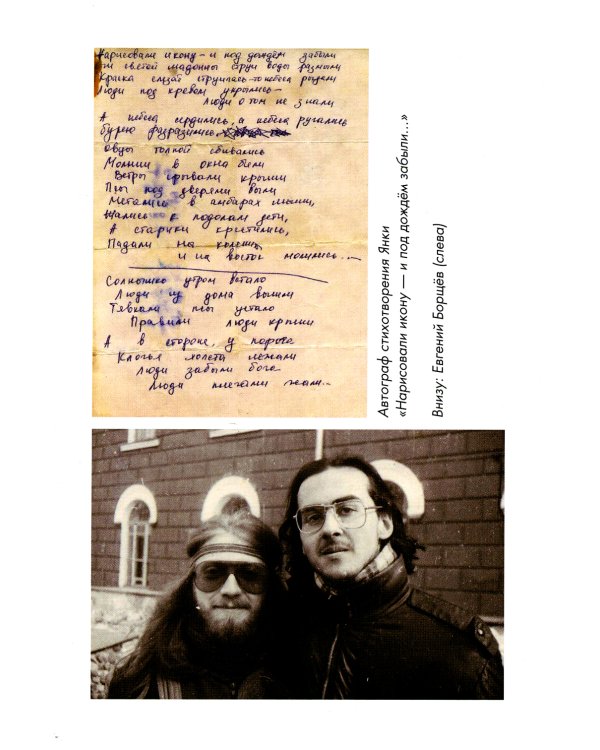 Нарисовали икону – и под дождём забыли
святой мадонны струи воды размыли
Краска слезой струилась – то небеса рыдали
Люди под кровом укрылись –
люди о том не знали
А небеса сердились, а небеса ругались
бурею разразились,
Овцы толпой сбивались
Молнии в окна били
Ветры срывали крыши
Псы под дверями выли
Метались в амбарах мыши,
Жались к подолам дети,
А старики крестились,
Падали на колени,
и на восток молились...
Солнышко утром встало
Люди из дома вышли
Тявкали псы устало
Правили люди крыши
А в стороне, у порога
Клочья холста лежали
Люди забыли бога
Люди плечами жали...
Автограф стихотворения Янки
«Нарисовали икону — и под дождём забыли...»
Внизу: Евгений Борщёв (слева)